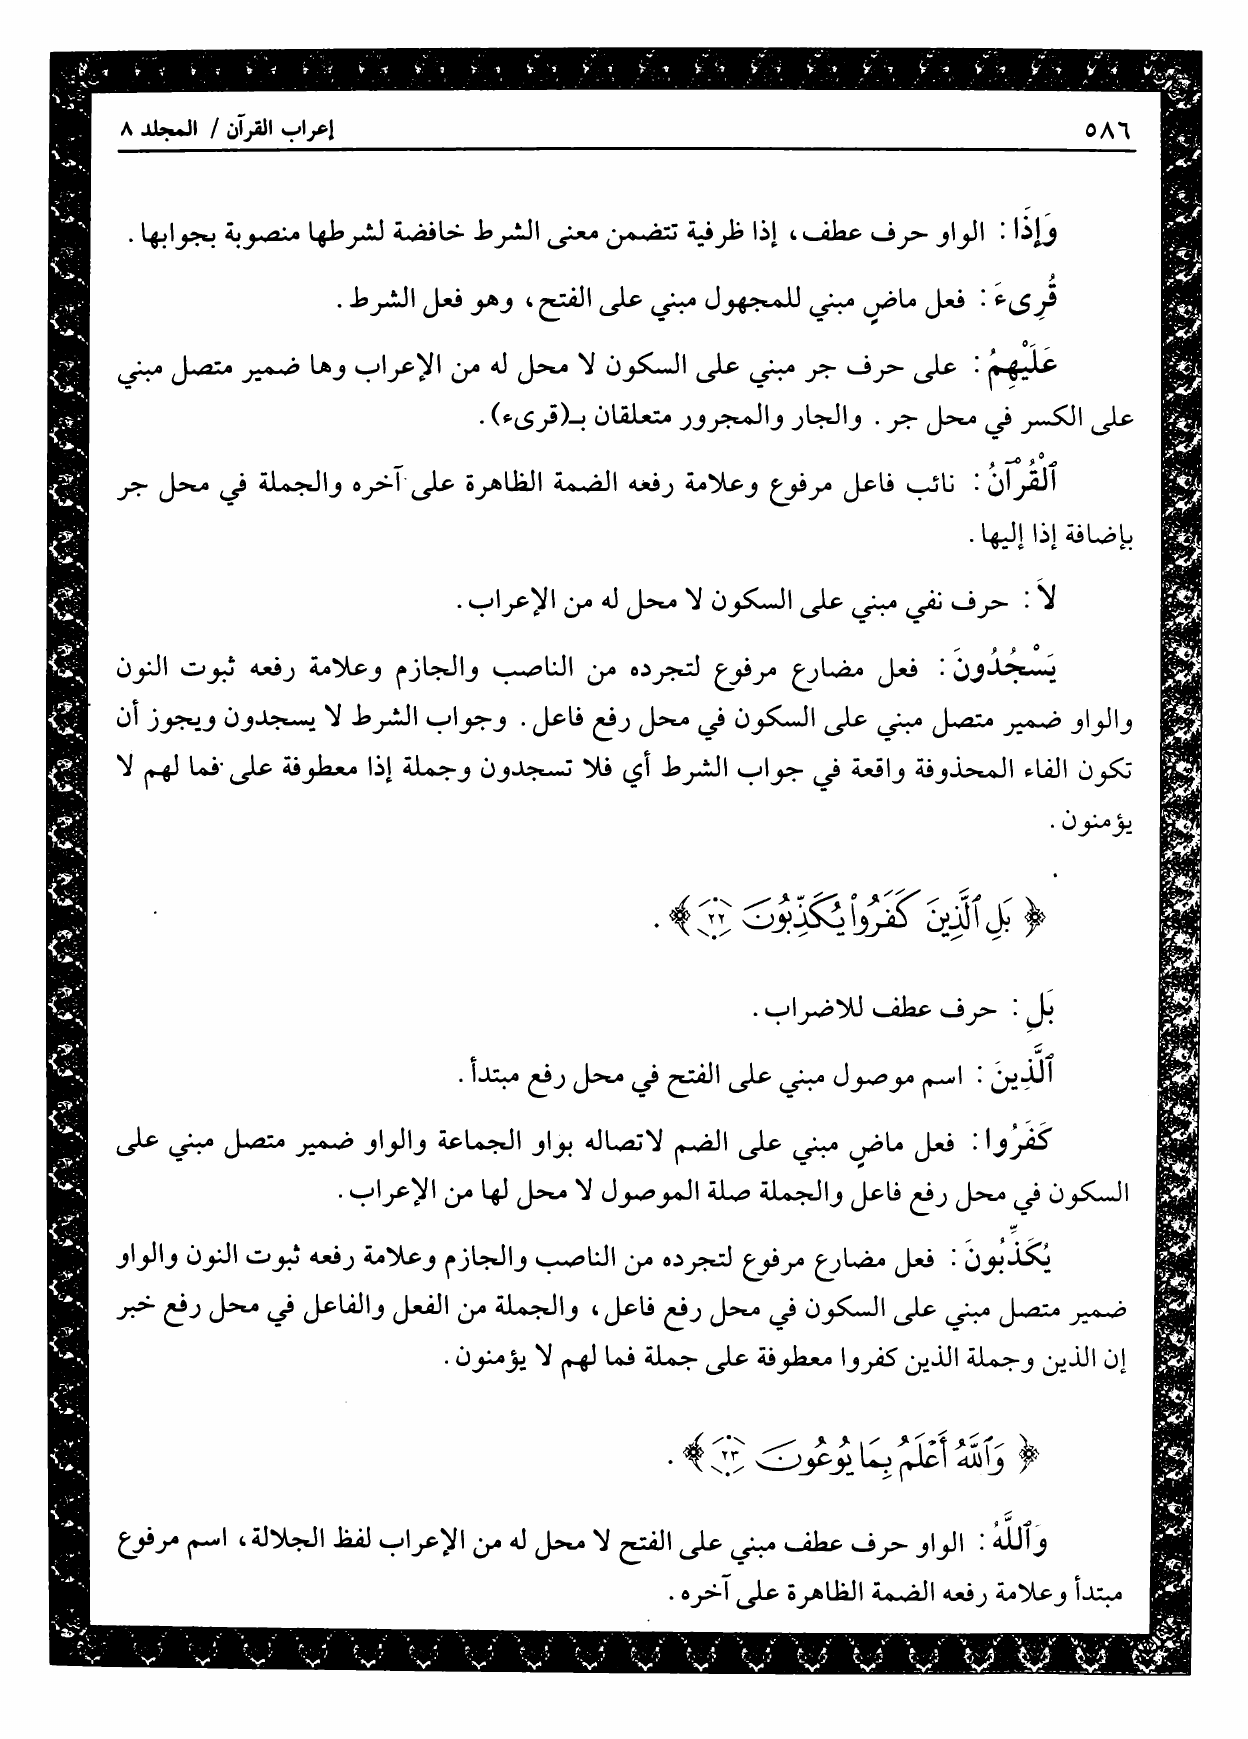 ٥٨٦
إعراب القرآن / المجلد ٨
وَإِذَا : الواو حرف عطف، إذا ظرفية تتضمن معنى الشرط خافضة لشرطها منصوبة بجوابها .
قُرِىءَ : فعل ماضٍ مبني للمجهول مبني على الفتح، وهو فعل الشرط .
عَلَيْهِمُ : على حرف جر مبني على السكون لا محل له من الإعراب وها ضمير متصل مبني
على الكسر في محل جر . والجار والمجرور متعلقان بـ(قرىء).
ٱلْقُرْآنُ : نائب فاعل مرفوع وعلامة رفعه الضمة الظاهرة على آخره والجملة في محل جر
بإضافة إذا إليها .
لاَ : حرف نفي مبني على السكون لا محل له من الإعراب .
يَسْجُدُونَ : فعل مضارع مرفوع لتجرده من الناصب والجازم وعلامة رفعه ثبوت النون
والواو ضمير متصل مبني على السكون في محل رفع فاعل . وجواب الشرط لا يسجدون ويجوز أن
تكون الفاء المحذوفة واقعة في جواب الشرط أي فلا تسجدون وجملة إذا معطوفة على فما لهم لا
يؤمنون .
﴿ بَلِ ٱلَّذِينَ كَفَرُوا۟ يُكَذِّبُونَ ٢٢ ﴾ .
بَلِ : حرف عطف للاضراب .
ٱلَّذِينَ : اسم موصول مبني على الفتح في محل رفع مبتدأ .
كَفَرُوا : فعل ماضٍ مبني على الضم لاتصاله بواو الجماعة والواو ضمير متصل مبني على
السكون في محل رفع فاعل والجملة صلة الموصول لا محل لها من الإعراب .
يُكَذِّبُونَ : فعل مضارع مرفوع لتجرده من الناصب والجازم وعلامة رفعه ثبوت النون والواو
ضمير متصل مبني على السكون في محل رفع فاعل، والجملة من الفعل والفاعل في محل رفع خبر
إن الذين وجملة الذين كفروا معطوفة على جملة فما لهم لا يؤمنون .
﴿ وَٱللَّهُ أَعْلَمُ بِمَا يُوعُونَ ٢٣ ﴾ .
وَٱللَّهُ : الواو حرف عطف مبني على الفتح لا محل له من الإعراب لفظ الجلالة، اسم مرفوع
مبتدأ وعلامة رفعه الضمة الظاهرة على آخره .